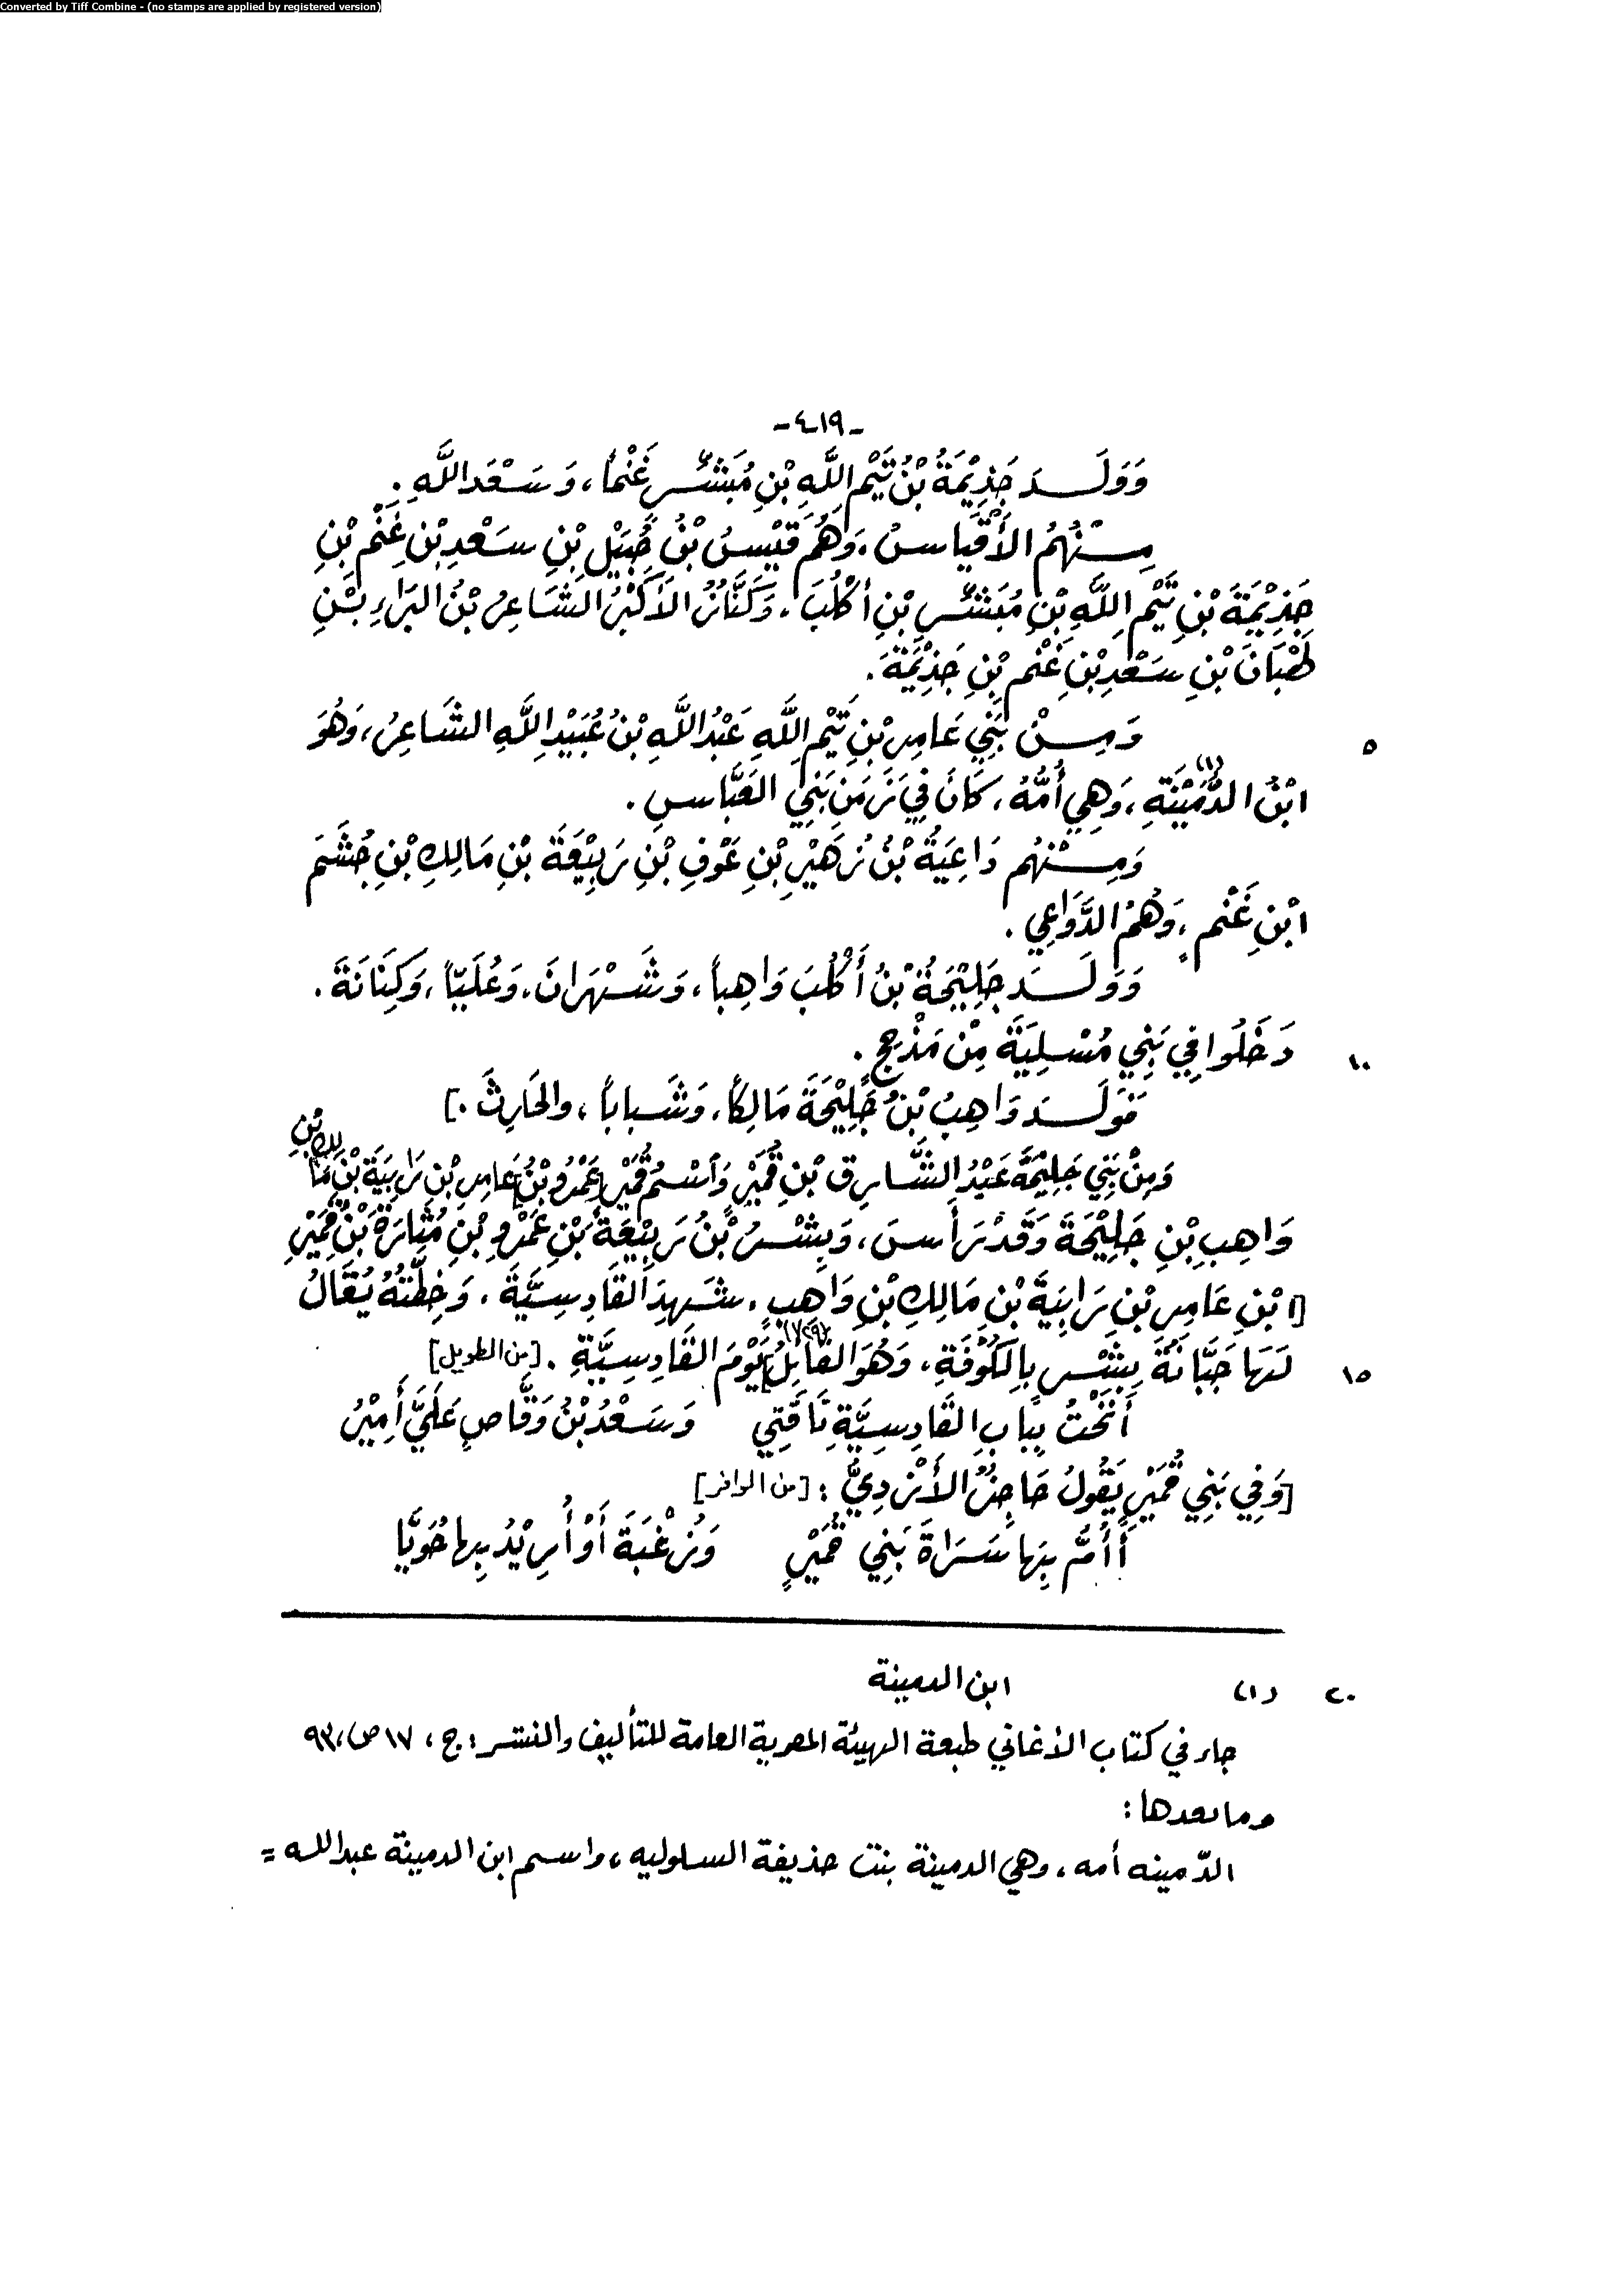 Converted by Tiff Combine - (no stamps are applied by registered version)
-٤١٩-
وَوَلَدَ جَذِيْمَةُ بْنُ تَيْمِ اللَّهِ بْنِ مُبَشِّرٍ غَنْماً، وَسَعْدَ اللَّهِ.
مِنْهُمُ الأَقْيَاسُ، وَهُمْ قَيْسُ بْنُ جُبَيْلِ بْنِ سَعْدِ بْنِ غَنْمِ بْنِ
جَذِيْمَةَ بْنِ تَيْمِ اللَّهِ بْنِ مُبَشِّرِ بْنِ أَكْلُبَ، وَكَنَّازُ الأَكْبَرُ الشَّاعِرُ بْنُ البَرَاءِ بْنِ
ظَبْيَانَ بْنِ سَعْدِ بْنِ غَنْمِ بْنِ جَذِيْمَةَ.
٥ وَمِنْ بَنِي عَامِرِ بْنِ تَيْمِ اللَّهِ عَبْدُ اللَّهِ بْنُ عُبَيْدِ اللَّهِ الشَّاعِرُ، وَهُوَ
ابْنُ الدُّمَيْنَةِ (١)، وَهِي أُمُّهُ، كَانَ فِي زَمَنِ بَنِي العَبَّاسِ.
وَمِنْهُم دَاعِيَةُ بْنُ زُهَيْرِ بْنِ عَوْفِ بْنِ رَبِيْعَةَ بْنِ مَالِكِ بْنِ جُشَمَ
ابْنِ غَنْمٍ، وَهُمُ الدَّوَاعِي.
وَوَلَدَ جَلِيْحَةُ بْنُ أَكْلُبَ وَاهِباً، وَشَهْرَانَ، وَعُلَيّاً، وَكِنَانَةَ.
١٠ دَخَلُوا فِي بَنِي مُسْلِيَةَ مِنْ مَذْحِجٍ.
فَوَلَدَ وَاهِبُ بْنُ جَلِيْحَةَ مَالِكاً، وَشَبَاباً، والحَارِثَ.]
وَمِنْ بَنِي جَلِيْحَةَ عَبْدُ الشَّارِقِ بْنِ قُمَيْرٍ وَاسْمُ قُمَيْرٍ [عَمْرُو بْنُ] عَامِرِ بْنِ رَابِيَةَ بْنِ مَالِكِ بْنِ
وَاهِبِ بْنِ جَلِيْحَةَ وَقَدْ رَأَسَ، وَبِشْرُ بْنُ رَبِيْعَةَ بْنِ عَمْرِو بْنِ مُنَارَةَ بْنِ قُمَيْرِ
[ا بْنِ عَامِرِ بْنِ رَابِيَةَ بْنِ مَالِكِ بْنِ وَاهِبٍ، شَهِدَ القَادِسِيَّةَ، وَخِطَّتُهُ يُقَالُ
١٥ لَهَا جَبَّانَةُ بِشْرٍ بِالكُوْفَةِ، وَهُوَ القَائِلُ] يَوْمَ القَادِسِيَّةِ. [من الطويل]
أَنَخْتُ بِبَابِ القَادِسِيَّةِ نَاقَتِي    وَسَعْدُ بْنُ وَقَّاصٍ عَلَيَّ أَمِيْرُ
[وَفِي بَنِي قُمَيْرٍ يَقُولُ حَاجِزُ الأَزْدِيُّ: [من الوافر]
أَأُمُّ بِهَا سَرَاةَ بَنِي قُمَيْرٍ    وَزُغْبَةَ أَوْ أُرِيْدُ بِها حُوَيَّا
٢٠ (١) ابن الدمينة
جاء في كتاب الأغاني طبعة الهيئة المصرية العامة للتأليف والنشر: ج، ١٧ ص، ٩٣
وما بعدها:
الدّمينه أمه، وهي الدمينة بنت حذيفة السلوليه، واسم ابن الدمينة عبدالله =